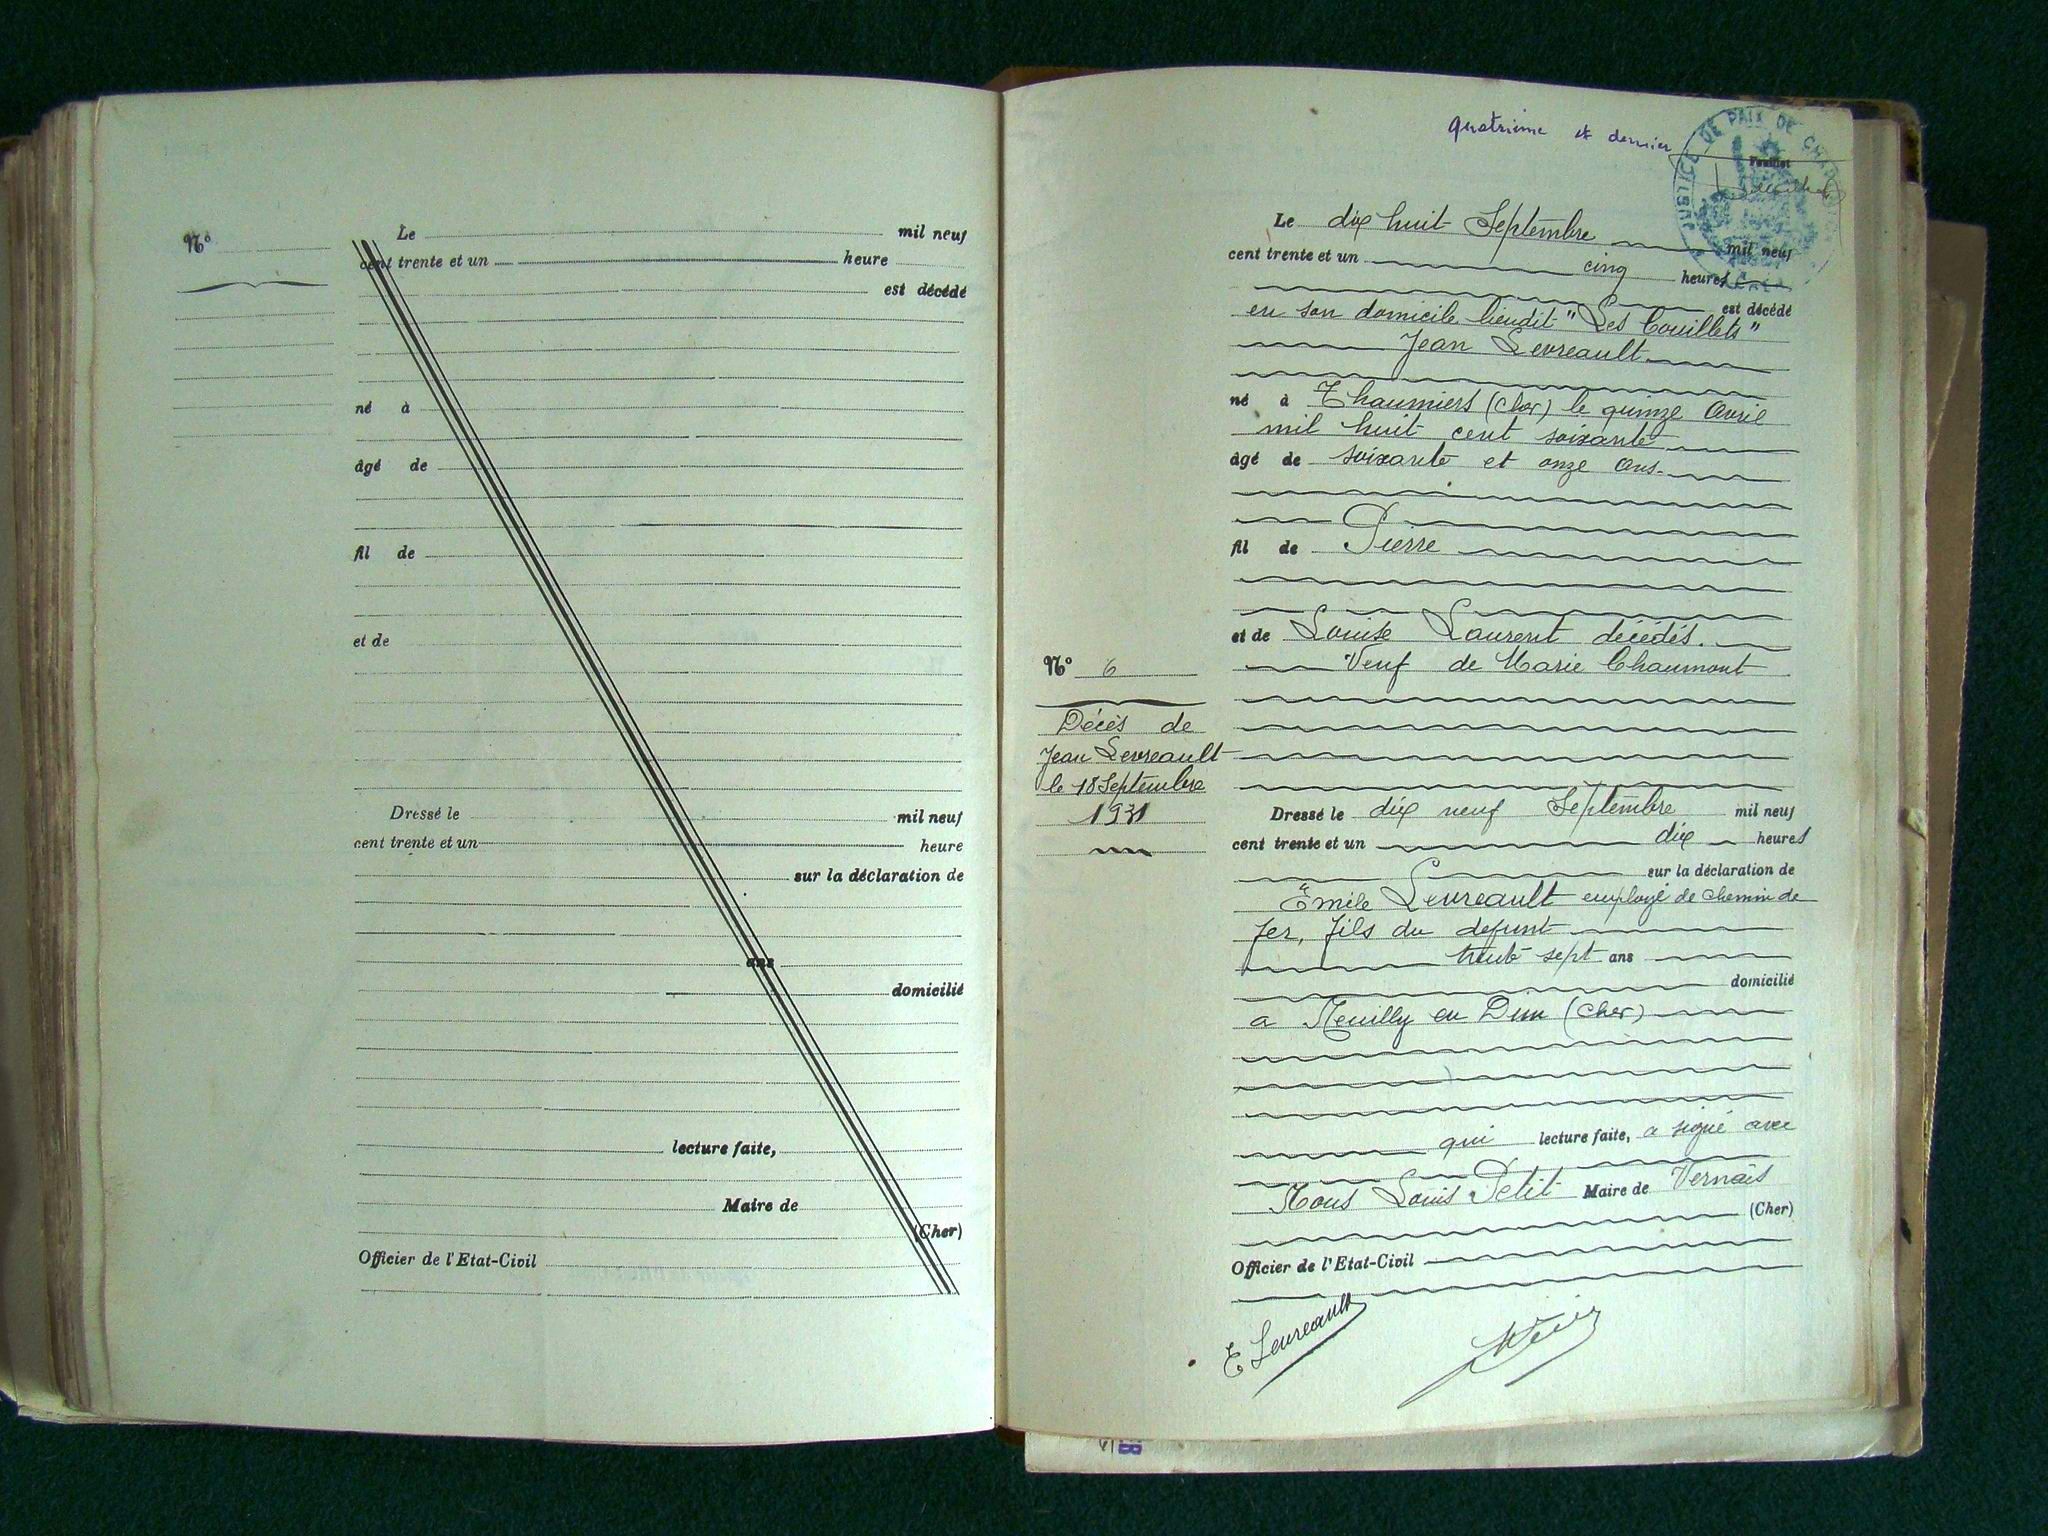 N°
Le mil neuf
cent trente et un heure
est décédé
né à
âgé de
fil de
et de
Dressé le mil neuf
cent trente et un heure
sur la déclaration de
ans
domicilié
lecture faite,
Maire de
(Cher)
Officier de l'Etat-Civil
quatrième et dernier
Feuillet
JUSTICE DE PAIX DE
N° 6
Décès de
Jean Levreault
le 18 Septembre
1931
Le dix huit Septembre mil neuf
cent trente et un cinq heures
est décédé
en son domicile lieudit "Les Couillets"
Jean Levreault
né à Thaumiers (Cher) le quinze Avril
mil huit cent soixante
âgé de soixante et onze ans.
fil de Pierre
et de Louise Laurent décédés.
Veuf de Marie Chaumont
Dressé le dix neuf Septembre mil neuf
cent trente et un dix heures
sur la déclaration de
Emile Levreault employé de chemin de
fer, fils du défunt
trente sept ans
domicilié
a Neuilly en Dun (Cher)
qui lecture faite, a signé avec
Nous Louis Petit Maire de Vernais
(Cher)
Officier de l'Etat-Civil
E Levreault